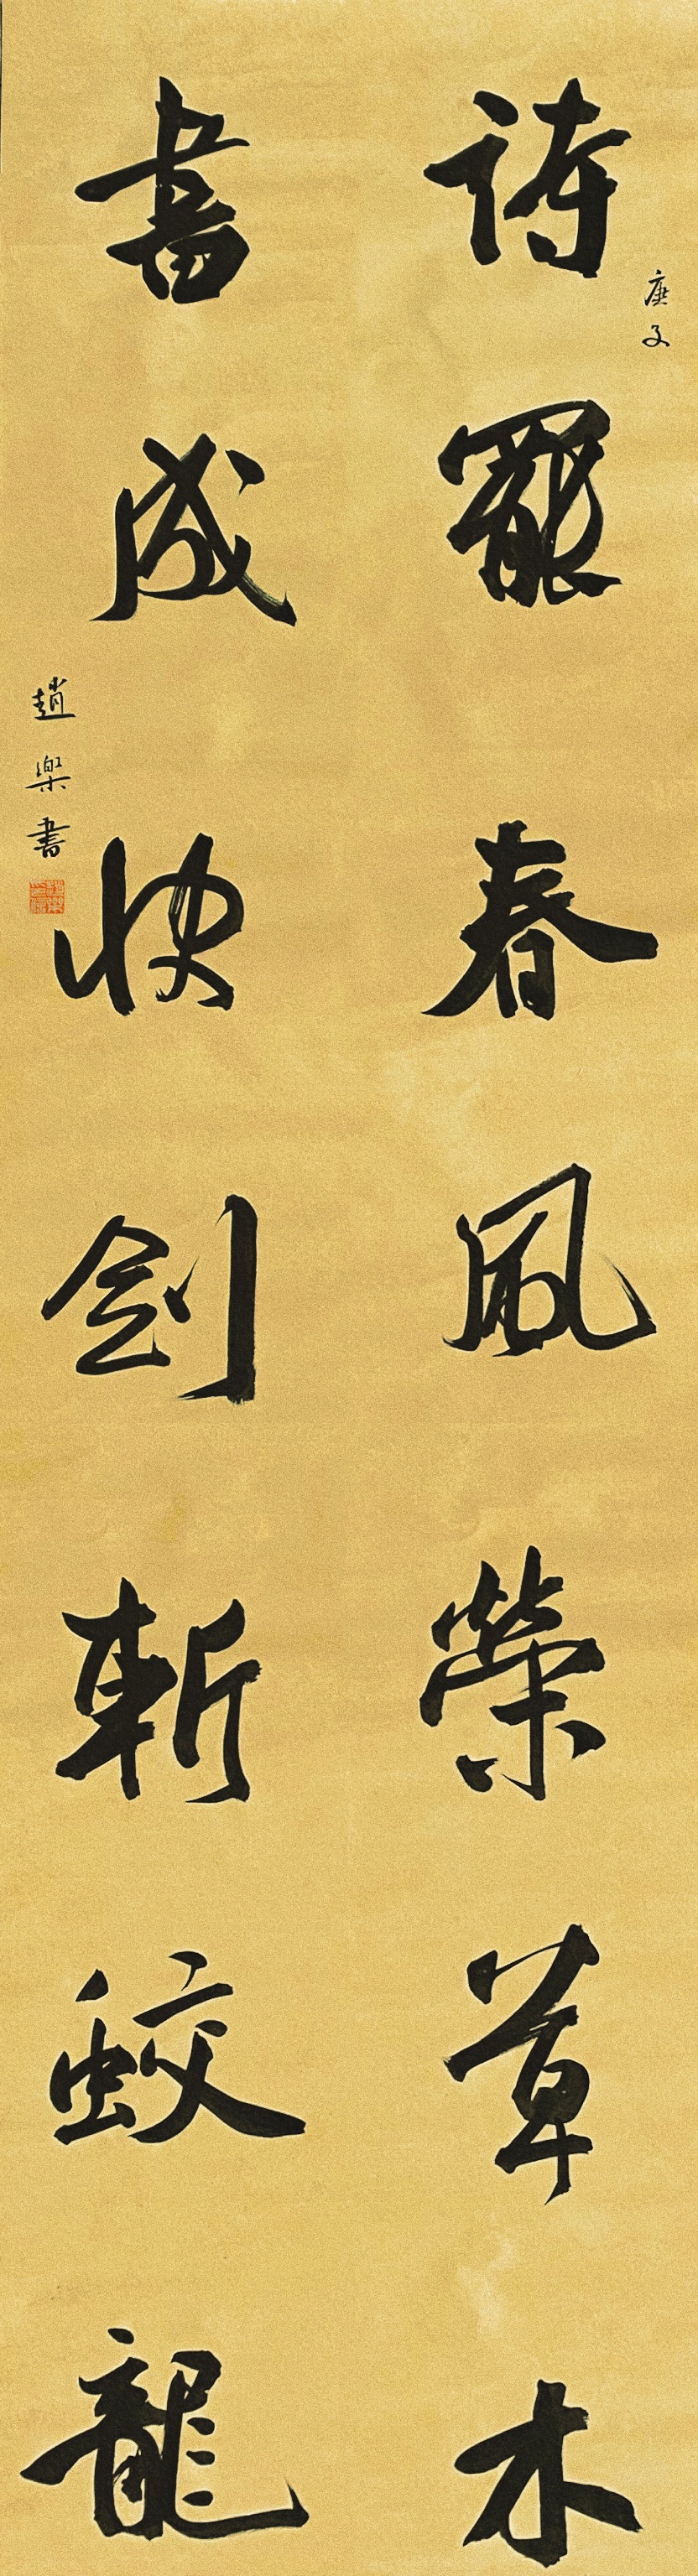 詩罷春風榮草木
庚子
書成快劍斬蛟龍
趙樂書